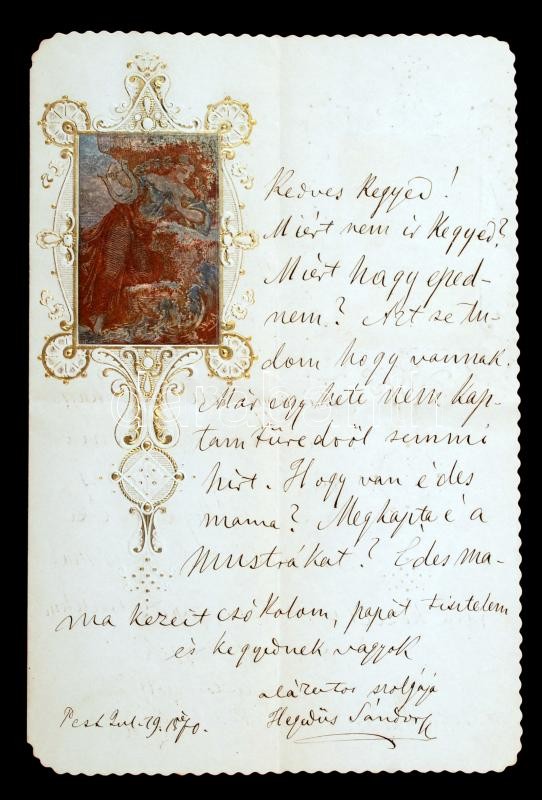 Kedves Kegyed!
Miért nem ir Kegyed?
Miért hagy eped-
nem? Azt se tu-
dom hogy vannak.
Már egy hete nem kap-
tam Füredről semmi
hirt. Hogy van édes
mama? Megkapta é a
mustrákat? Édes ma-
ma kezeit csókolom, papát tisztelem
és kegyednek vagyok
alázatos szolgája
Hegedüs Sándor
Pest Jul. 19. 1870.